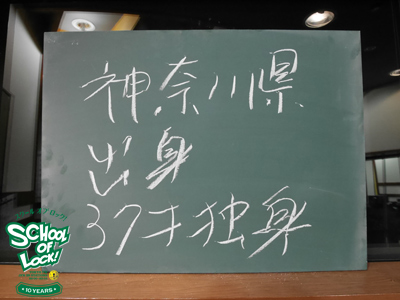 神奈川県
出身
37才独身
SCHOOL
OF
LOCK!
10 YEARS